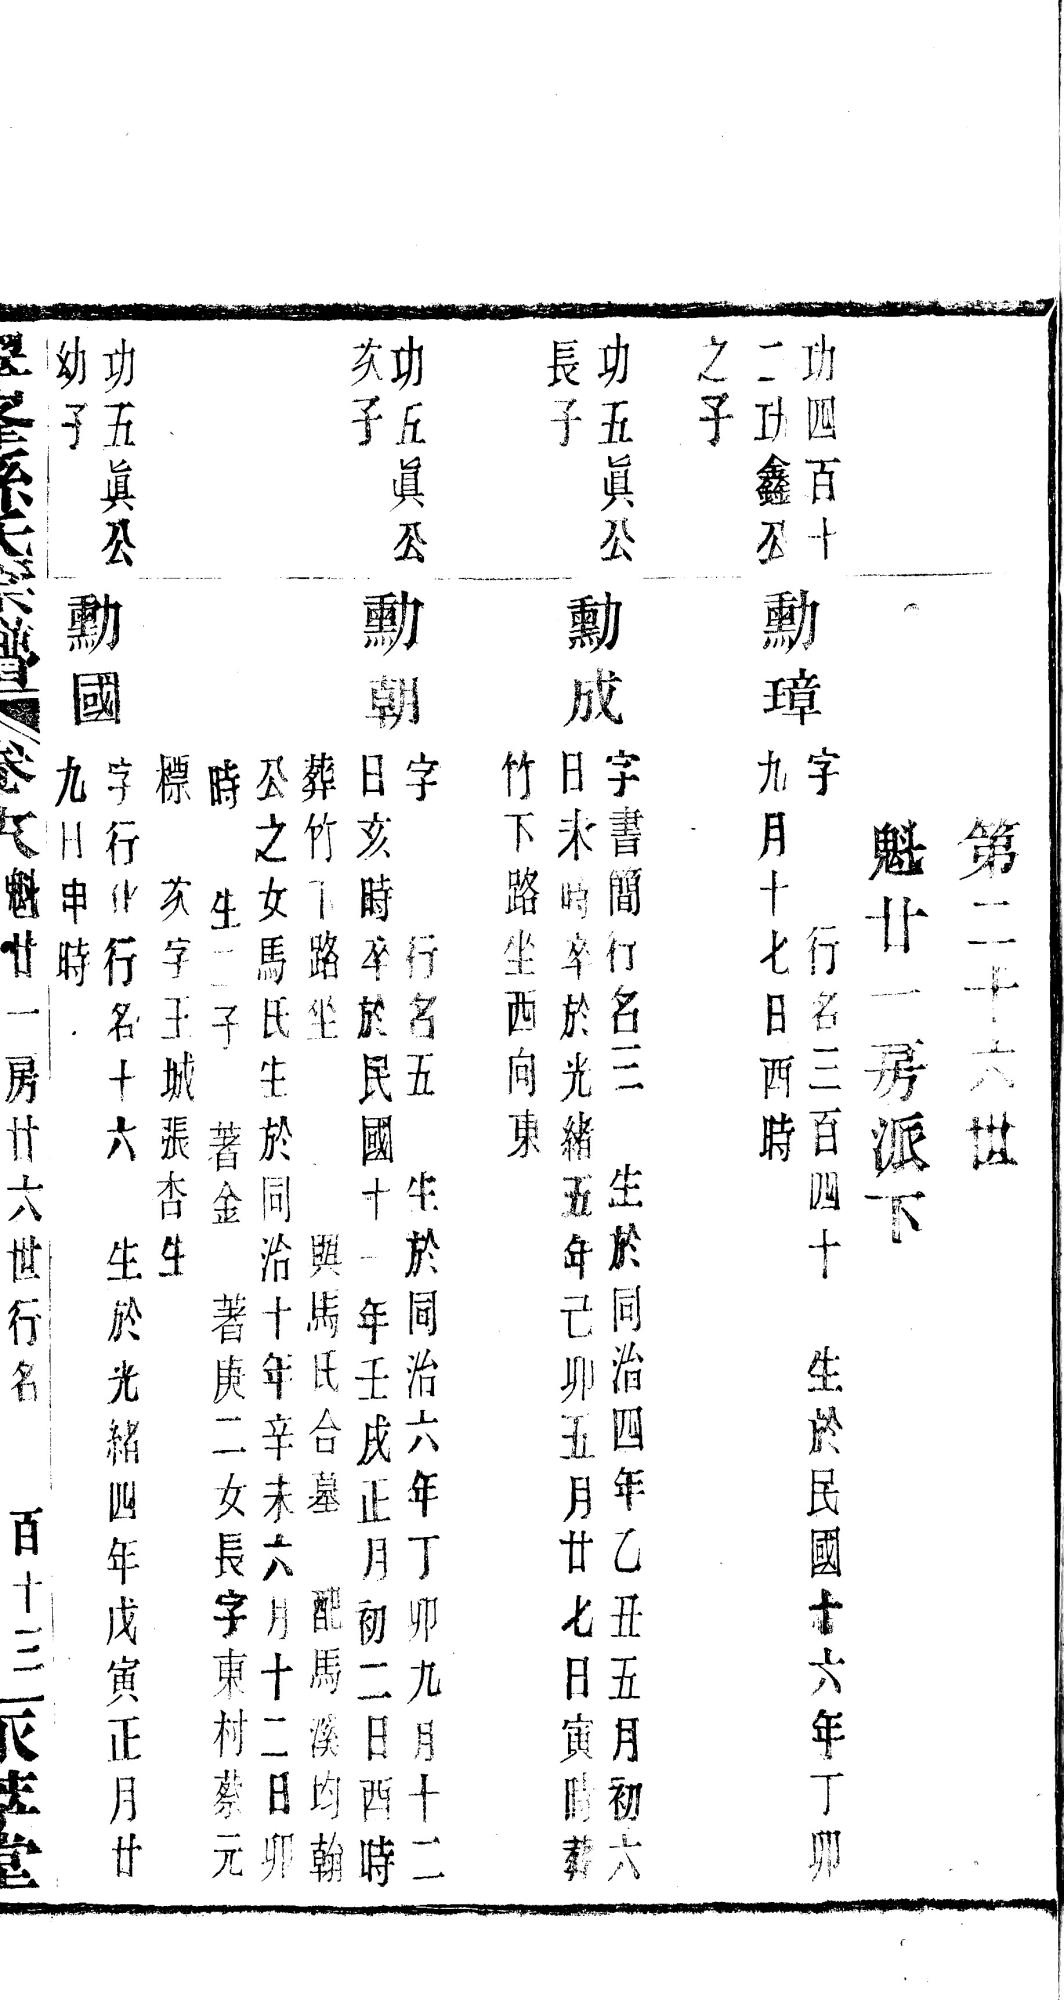 第二十六世
魁廿一房派下
功四百十
二功鑫公
之子
勳璋
字 行名三百四十 生於民國十六年丁卯
九月十七日酉時
功五眞公
長子
勳成
字書簡行名三 生於同治四年乙丑五月初六
日未時卒於光緒五年己卯五月廿七日寅時葬
竹下路坐西向東
功五眞公
次子
勳朝
字 行名五 生於同治六年丁卯九月十二
日亥時卒於民國十一年壬戌正月初二日酉時
葬竹下路坐 與馬氏合墓 配馬溪均翰
公之女馬氏生於同治十年辛未六月十二日卯
時 生二子 著金 著庚二女長字東村蔡元
標 次字王城張杏生
功五眞公
幼子
勳國
字行 行名十六 生於光緒四年戊寅正月廿
九日申時
峯孫氏宗譜 卷 魁廿一房廿六世行名 百十三 堂